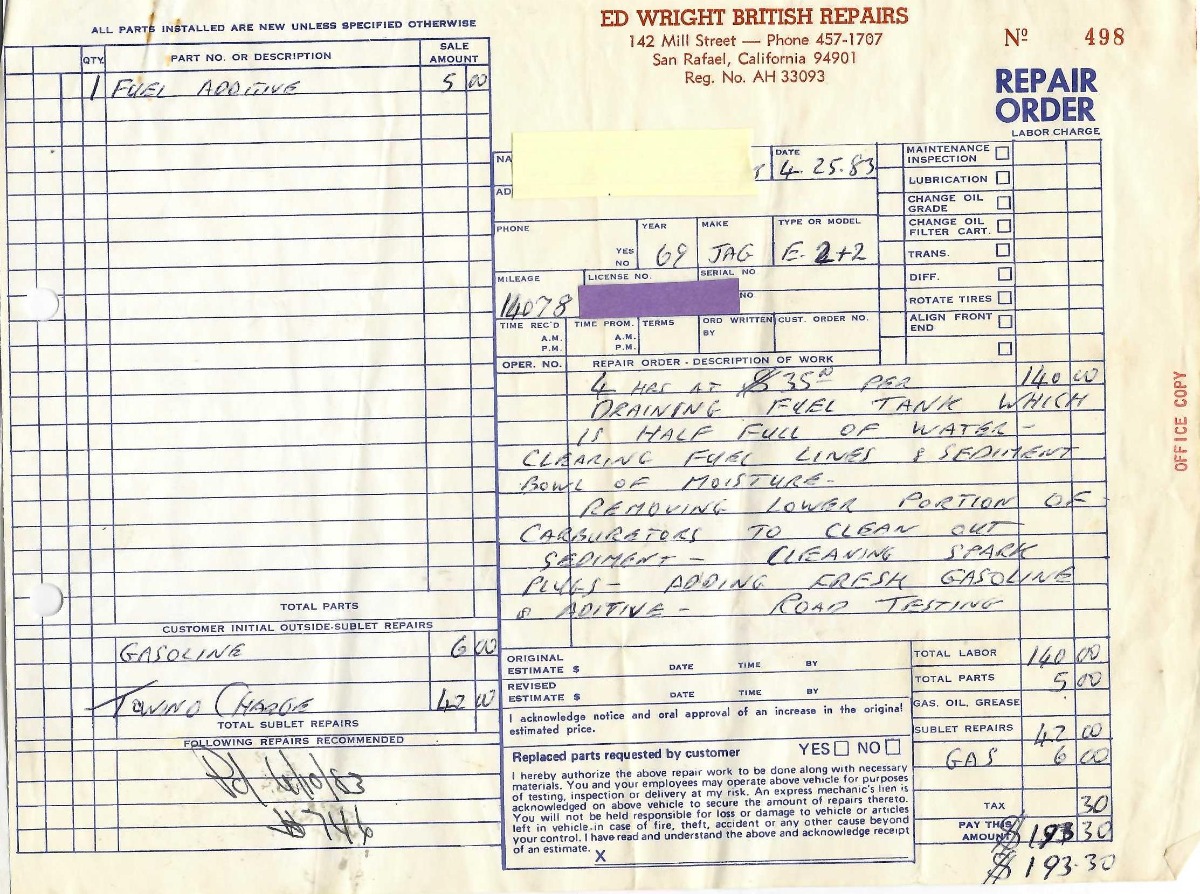 ALL PARTS INSTALLED ARE NEW UNLESS SPECIFIED OTHERWISE
ED WRIGHT BRITISH REPAIRS
142 Mill Street — Phone 457-1707
San Rafael, California 94901
Reg. No. AH 33093
Nº 498
REPAIR
ORDER
LABOR CHARGE
QTY. PART NO. OR DESCRIPTION SALE AMOUNT
1 FUEL ADDITIVE 5 00
TOTAL PARTS
CUSTOMER INITIAL OUTSIDE-SUBLET REPAIRS
GASOLINE 6 00
TOWING CHARGE 42 00
TOTAL SUBLET REPAIRS
FOLLOWING REPAIRS RECOMMENDED
Pd
746
NA
DATE
4.25.83
AD
PHONE
YES
NO
YEAR
69
MAKE
JAG
TYPE OR MODEL
E. 2+2
MILEAGE
14078
LICENSE NO.
SERIAL NO
NO.
TIME REC'D
A.M.
P.M.
TIME PROM.
A.M.
P.M.
TERMS
ORD WRITTEN
BY
CUST. ORDER NO.
MAINTENANCE
INSPECTION
LUBRICATION
CHANGE OIL
GRADE
CHANGE OIL
FILTER CART.
TRANS.
DIFF.
ROTATE TIRES
ALIGN FRONT
END
OPER. NO. REPAIR ORDER - DESCRIPTION OF WORK
4 HRS AT $35 00 PER 140 00
DRAINING FUEL TANK WHICH
IS HALF FULL OF WATER -
CLEARING FUEL LINES & SEDIMENT
BOWL OF MOISTURE -
REMOVING LOWER PORTION OF
CARBURETORS TO CLEAN OUT
SEDIMENT - CLEANING SPARK
PLUGS - ADDING FRESH GASOLINE
& ADITIVE - ROAD TESTING
OFFICE COPY
ORIGINAL
ESTIMATE $ DATE TIME BY
REVISED
ESTIMATE $ DATE TIME BY
I acknowledge notice and oral approval of an increase in the original
estimated price.
Replaced parts requested by customer YES NO
I hereby authorize the above repair work to be done along with necessary
materials. You and your employees may operate above vehicle for purposes
of testing, inspection or delivery at my risk. An express mechanic's lien is
acknowledged on above vehicle to secure the amount of repairs thereto.
You will not be held responsible for loss or damage to vehicle or articles
left in vehicle.in case of fire, theft, accident or any other cause beyond
your control. I have read and understand the above and acknowledge receipt
of an estimate.
X
TOTAL LABOR 140 00
TOTAL PARTS 5 00
GAS. OIL, GREASE
SUBLET REPAIRS 42 00
GAS 6 00
TAX 30
PAY THIS
AMOUNT $193 30
$193.30